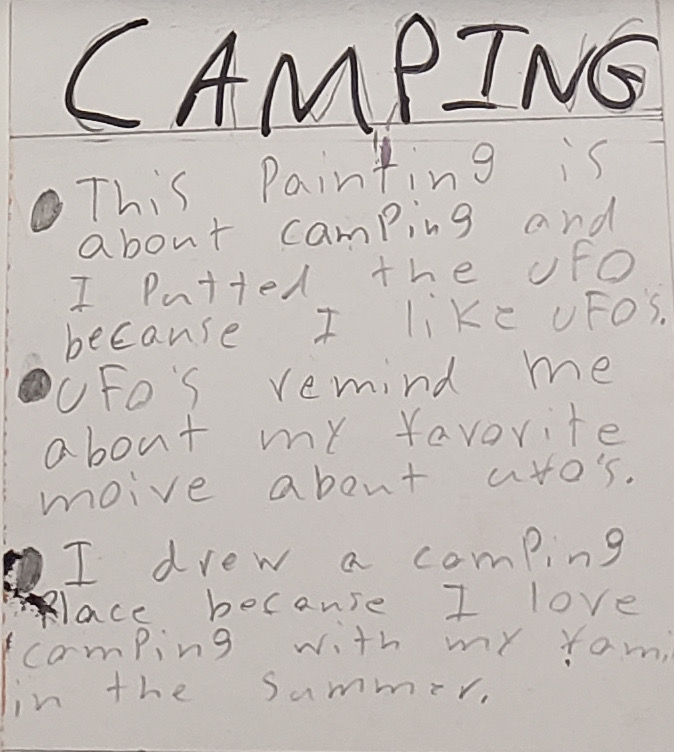 CAMPING
This Painting is
about camping and
I Putted the UFO
because I like UFO's.
UFO's remind me
about my favorite
moive about ufo's.
I drew a camping
Place because I love
camping with my fami
in the summer.